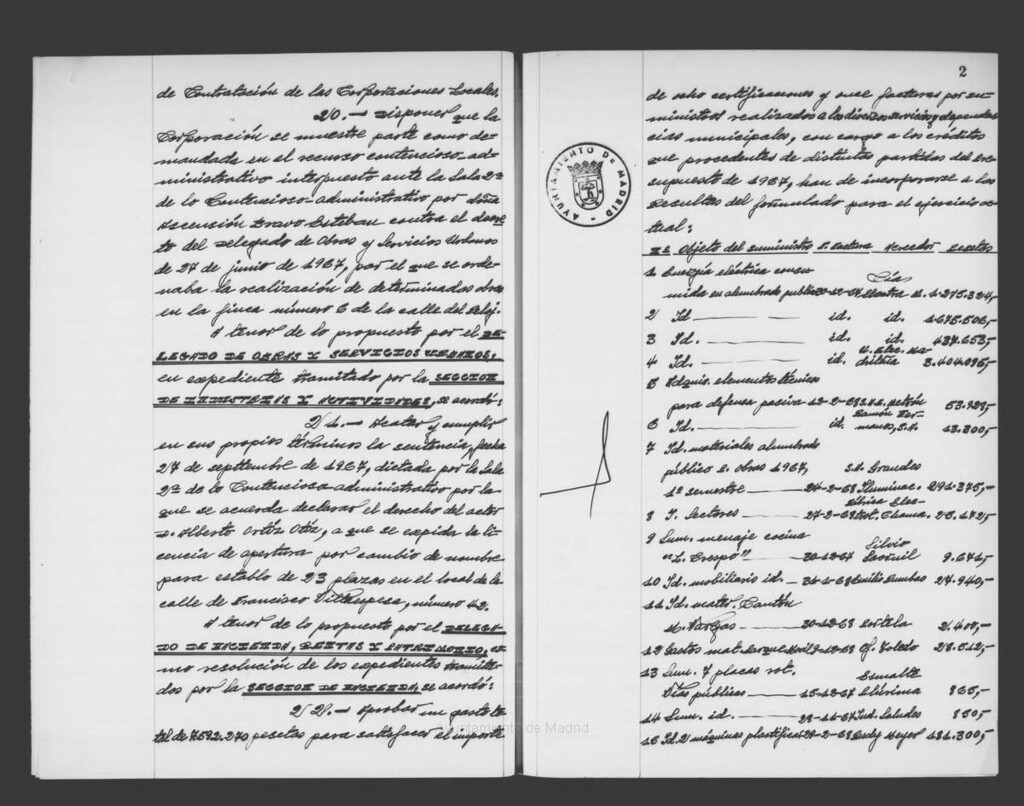 de Contratación de las Corporaciones Locales.
20.— Disponer que la
Corporación se muestre parte como de-
mandada en el recurso contencioso-ad-
ministrativo interpuesto ante la Sala 2ª
de lo Contencioso-administrativo por doña
Ascensión Bravo Esteban contra el decre-
to del Delegado de Obras y Servicios Urbanos
de 27 de junio de 1967, por el que se orde-
naba la realización de determinadas obras
en la finca número 6 de la calle del Reloj.
A tenor de lo propuesto por el DE-
LEGADO DE OBRAS Y SERVICIOS URBANOS,
en expediente tramitado por la SECCION
DE INDUSTRIAS Y ACTIVIDADES, se acordó:
21.— Acatar y cumplir
en sus propios términos la sentencia, fecha
27 de septiembre de 1967, dictada por la Sala
2ª de lo Contencioso-administrativo por la
que se acuerda declarar el derecho del actor
D. Alberto Ortiz Ortiz, a que se expida la li-
cencia de apertura por cambio de nombre
para establo de 23 plazas en el local de la
calle de Francisco Villaespesa, número 42.
A tenor de lo propuesto por el DELEGA-
DO DE HACIENDA, RENTAS Y PATRIMONIO, co-
mo resolución de los expedientes tramita-
dos por la SECCION DE HACIENDA, se acordó:
22.— Aprobar un gasto to-
tal de 7.592.270 pesetas para satisfacer el importe
2
de ocho certificaciones y once facturas por su-
ministros realizados a los diversos servicios y dependen-
cias municipales, con cargo a los créditos
que procedentes de distintas partidas del Pre-
supuesto de 1967, han de incorporarse a las
Resultas del formulado para el ejercicio ac-
tual:
AYUNTAMIENTO DE MADRID
Nº Objeto del suministro F. factura Acreedor Pesetas
1 Energía eléctrica consu-
mida en alumbrado público Cías. Electra M. 1.275.324,-
2 Id. id. id. 1.675.506,-
3 Id. id. id. 437.653,-
4 Id. id. U. Elec. Ma-
drileña 3.404.095,-
5 Adquis. elementos técnicos
para defensa pasiva 53.928,-
6 Id. id. Ramón Her-
manos, S.A. 13.300,-
7 Id. materiales alumbrado
público e. obras 1967,
1º semestre 24-2-68 Iluminac. 291.375,-
8 I. Sectores 27-2-68
9 Sum. menaje cocina
"L. Crespo" 30-12-67 Silvio 9.671,-
10 Id. mobiliario id. Emilio 27.940,-
11 Id. mater. Cantón
M. Vargas 30-12-68 Portela 2.400,-
12 Gastos mat. Parque Móvil Of. Toledo 28.512,-
13 Sum. 7 placas rot.
Vías públicas 15-12-67 Esmalte 865,-
14 Sum. id. Ind. 850,-
15 Id. 2 máquinas 181.300,-
Ayuntamiento de Madrid